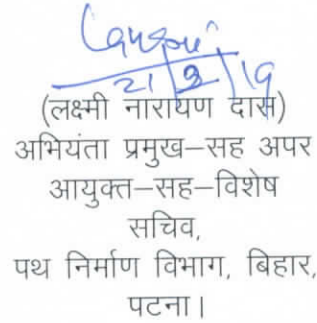 21/3/19
(लक्ष्मी नारायण दास)
अभियंता प्रमुख–सह अपर
आयुक्त–सह–विशेष
सचिव,
पथ निर्माण विभाग, बिहार,
पटना।